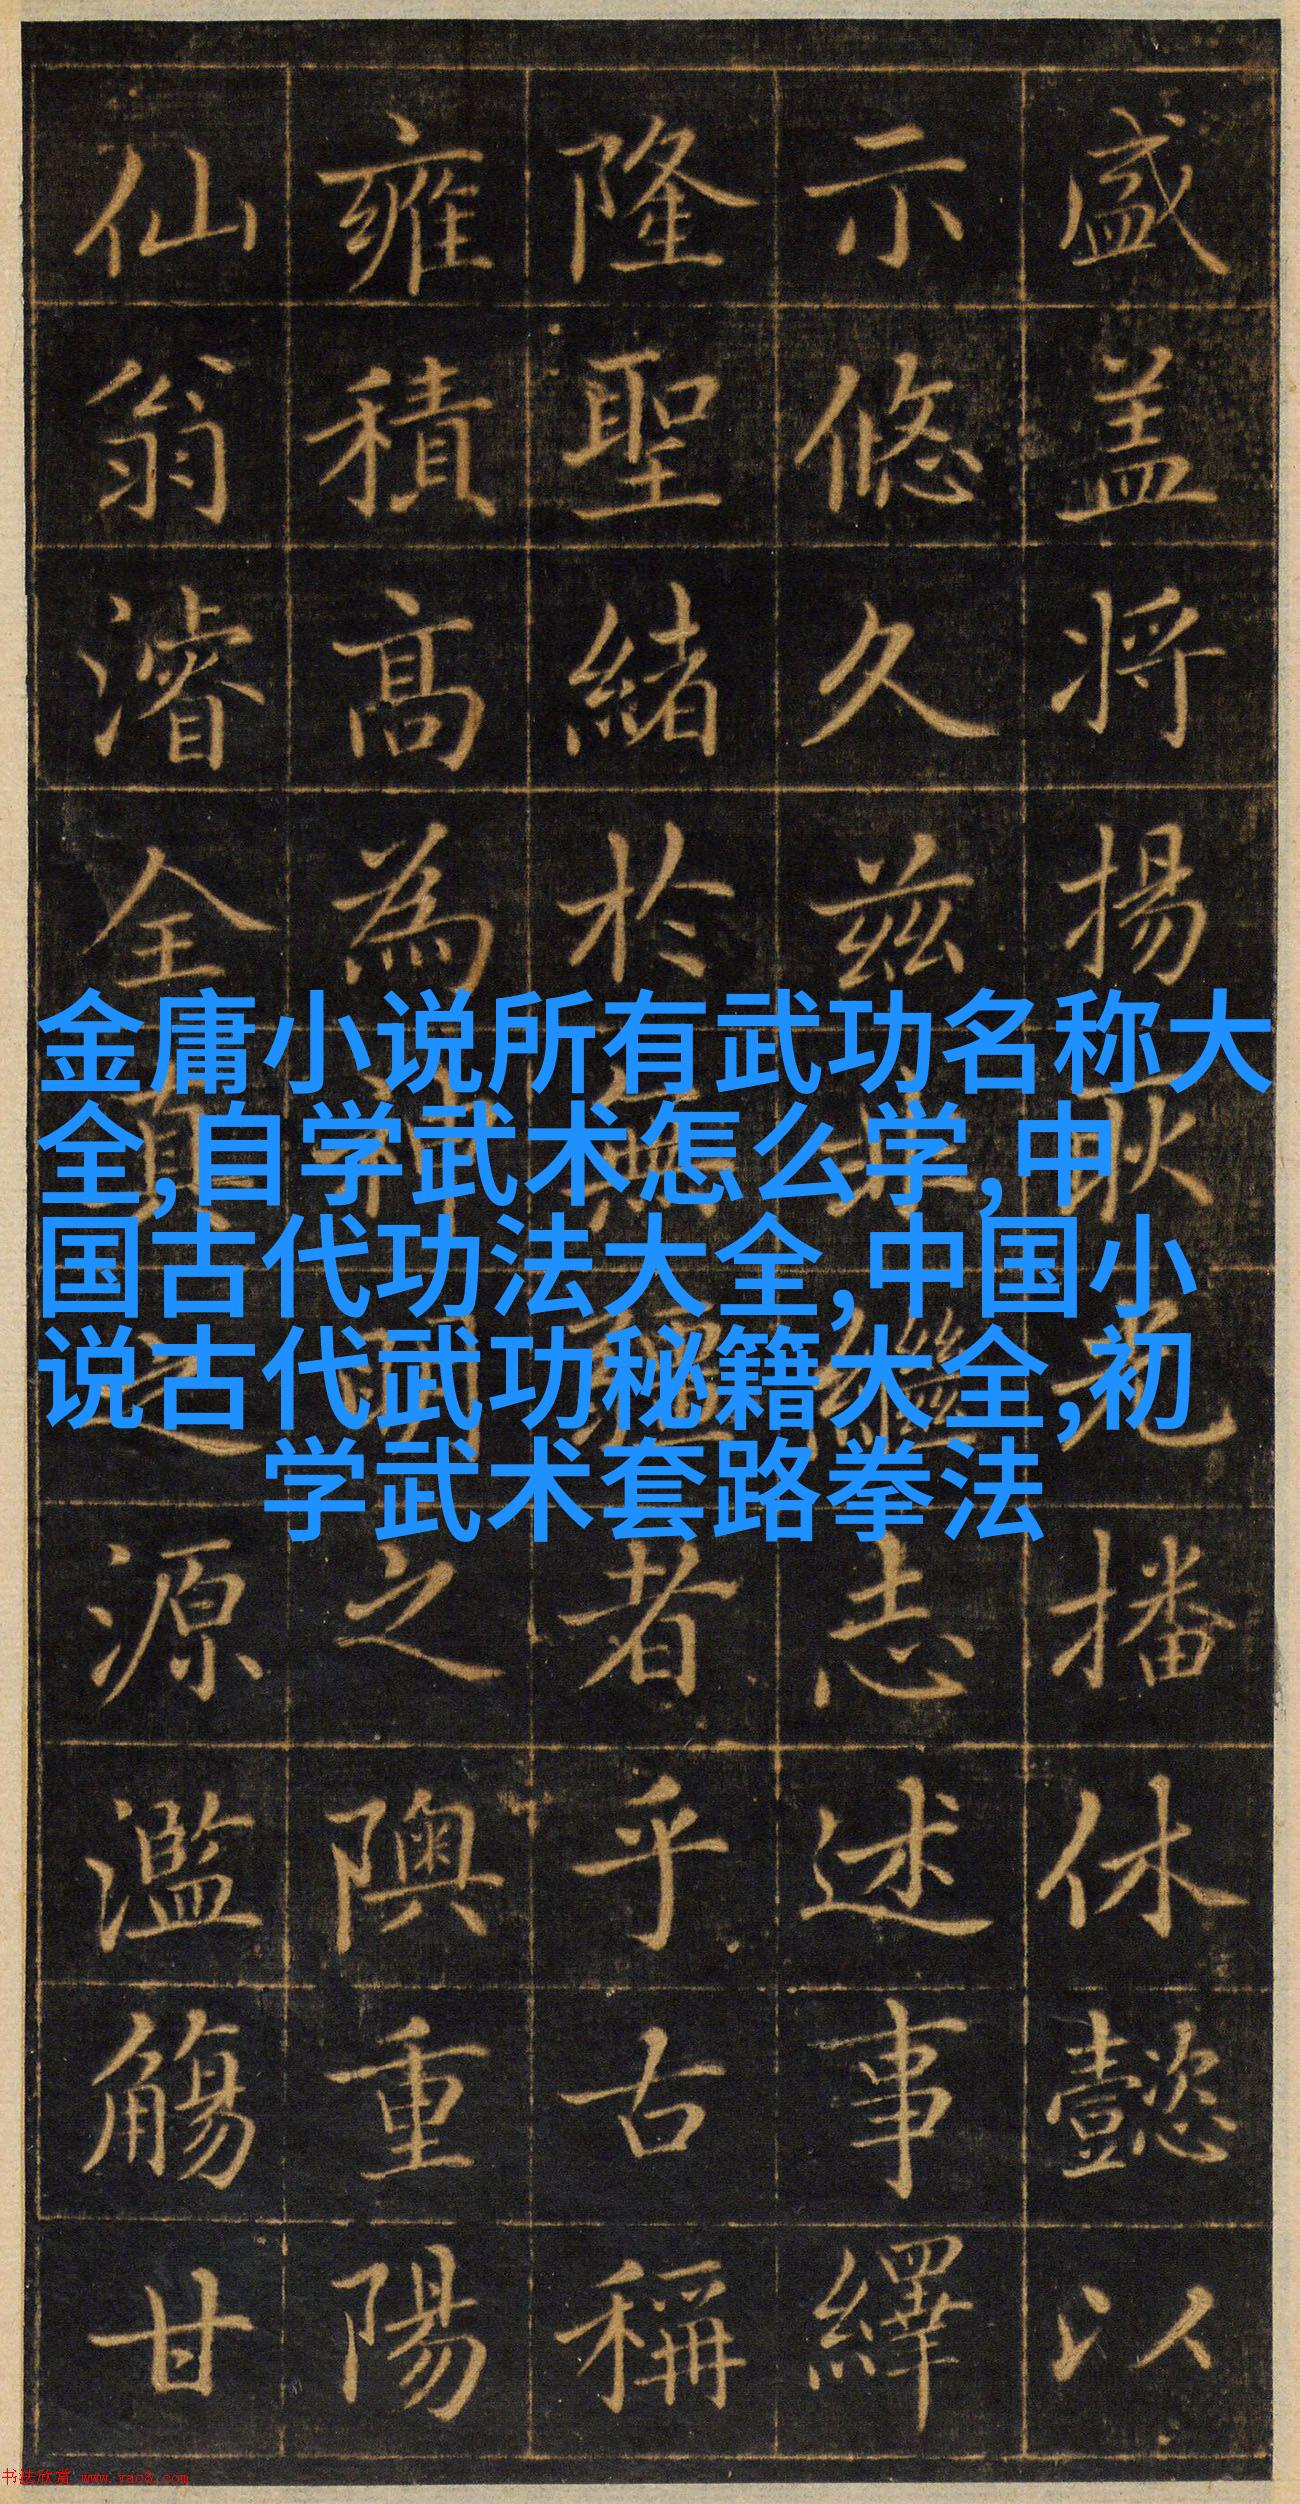 金庸小说所有武功名称大
全,自学武术怎么学,中
国古代功法大全,中国小
说古代武功秘籍大全,初
学武术套路拳法
盛盖将揚耿光播休懿以
示悠久兹繼志述事繹
隆聖緒於無疆者乎古稱
雍積高為神明之隩重陽
仙翁濬全真之源濫觴甘
书法欣赏 www.yac8.com